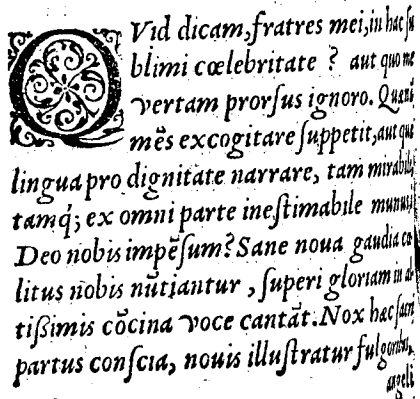 QVid dicam, fratres mei, in hac ſu
blimi cœlebritate ? aut quo me
vertam prorſus ignoro. Quæ
mẽs excogitare ſuppetit, aut quę
lingua pro dignitate narrare, tam mirabile
tamq́; ex omni parte ineſtimabile munus
Deo nobis impẽſum? Sane noua gaudia cœ
litus nobis nũtiantur , ſuperi gloriam in al
tiſsimis cõcina voce cantãt. Nox hac ſacri
partus conſcia, nouis illuſtratur fulgoribus,
angeli